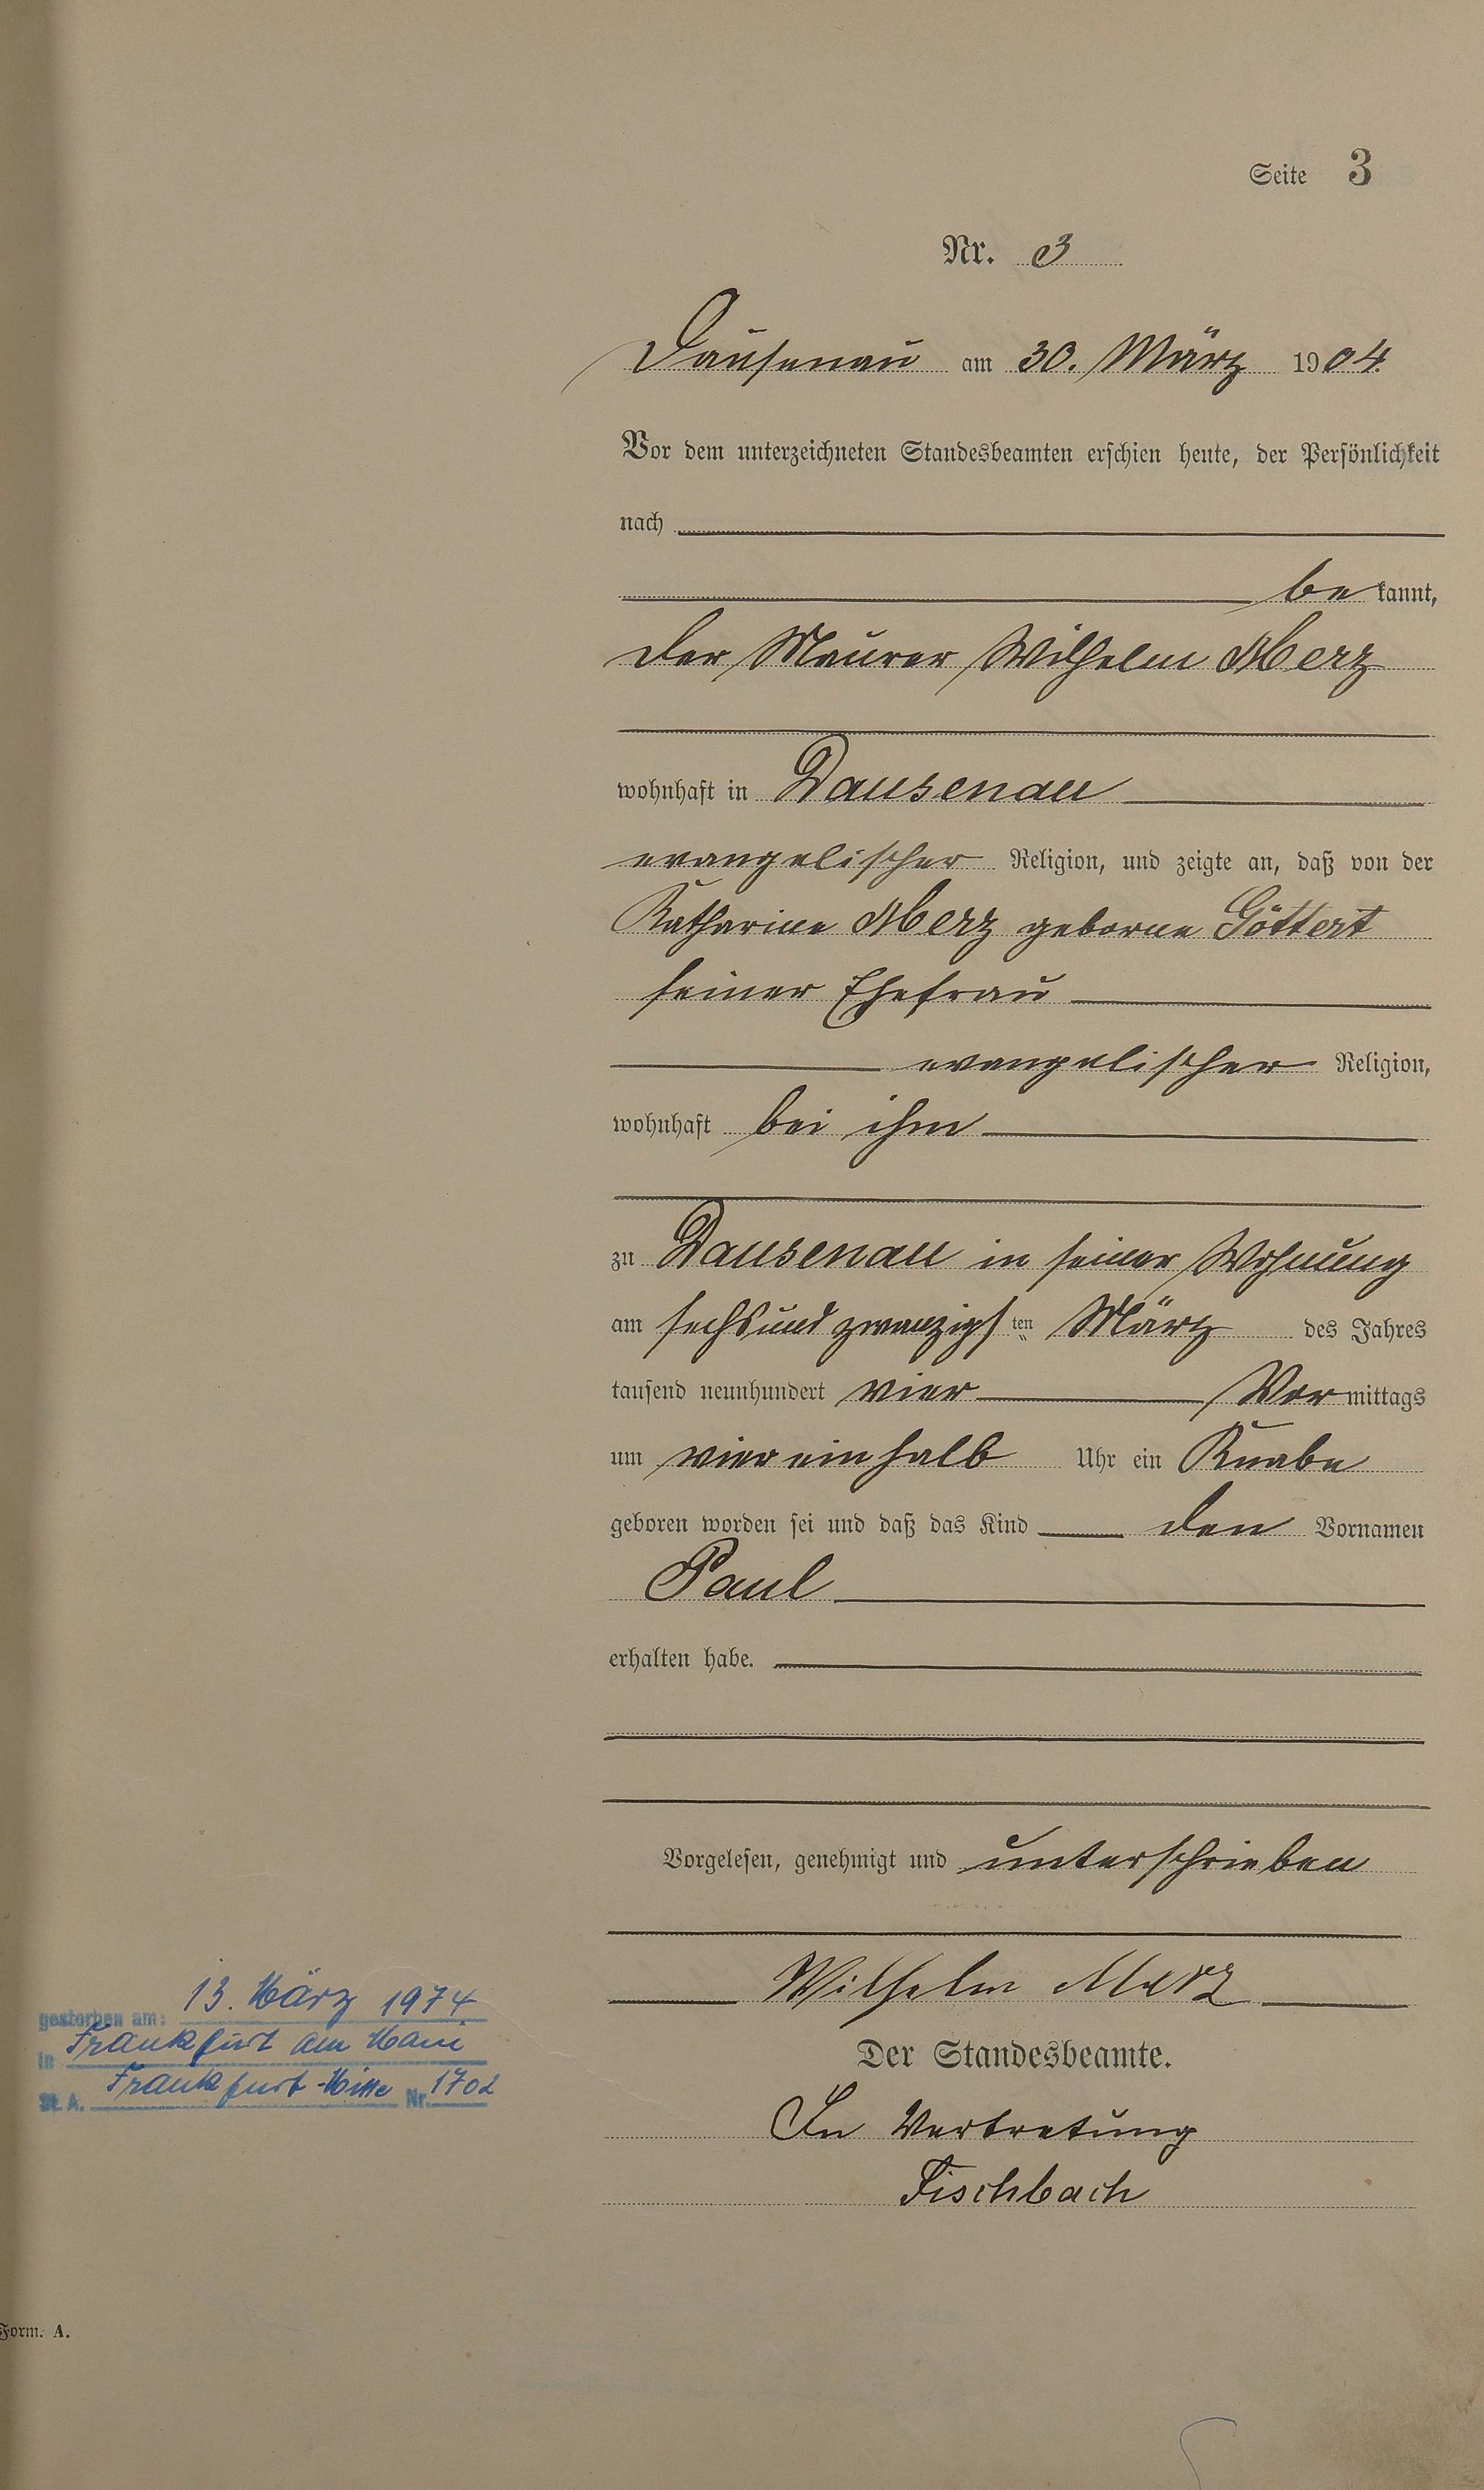 Seite 3
Nr. 3
Dausenau am 30. März 1904.
Vor dem unterzeichneten Standesbeamten erschien heute, der Persönlichkeit
nach
bekannt,
der Maurer Wilhelm Merz
wohnhaft in Dausenau
evangelischer Religion, und zeigte an, daß von der
Katharine Merz geborne Göttert
seiner Ehefrau
evangelischer Religion,
wohnhaft bei ihm
zu Dausenau in seiner Wohnung
am sechsundzwanzigsten März des Jahres
tausend neunhundert vier Vormittags
um viereinhalb Uhr ein Knabe
geboren worden sei und daß das Kind den Vornamen
Paul
erhalten habe.
Vorgelesen, genehmigt und unterschrieben
Wilhelm Merz
Der Standesbeamte.
In Vertretung
Fischbach
gestorben am: 13. März 1974
in Frankfurt am Main
St. A. Frankfurt-Mitte Nr. 1702
Form. A.